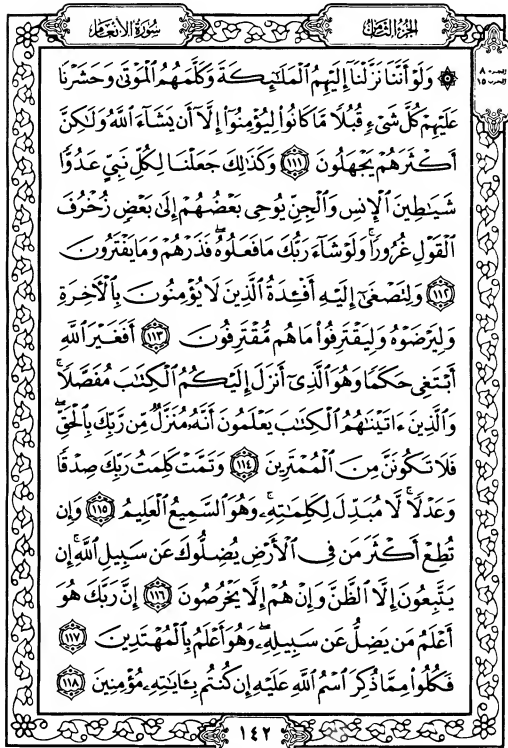 سُورَةُ الأَنْعَامِ
الجُزْءُ الثَّامِنُ
۞ وَلَوْ أَنَّنَا نَزَّلْنَا إِلَيْهِمُ الْمَلَٰٓئِكَةَ وَكَلَّمَهُمُ الْمَوْتَىٰ وَحَشَرْنَا
عَلَيْهِمْ كُلَّ شَىْءٍ قُبُلًا مَّا كَانُوا۟ لِيُؤْمِنُوٓا۟ إِلَّآ أَن يَشَآءَ اللَّهُ وَلَٰكِنَّ
أَكْثَرَهُمْ يَجْهَلُونَ ۝١١١ وَكَذَٰلِكَ جَعَلْنَا لِكُلِّ نَبِىٍّ عَدُوًّا
شَيَٰطِينَ الْإِنسِ وَالْجِنِّ يُوحِى بَعْضُهُمْ إِلَىٰ بَعْضٍ زُخْرُفَ
الْقَوْلِ غُرُورًا ۚ وَلَوْ شَآءَ رَبُّكَ مَا فَعَلُوهُ ۖ فَذَرْهُمْ وَمَا يَفْتَرُونَ
۝١١٢ وَلِتَصْغَىٰٓ إِلَيْهِ أَفْـِٔدَةُ الَّذِينَ لَا يُؤْمِنُونَ بِالْءَاخِرَةِ
وَلِيَرْضَوْهُ وَلِيَقْتَرِفُوا۟ مَا هُم مُّقْتَرِفُونَ ۝١١٣ أَفَغَيْرَ اللَّهِ
أَبْتَغِى حَكَمًا وَهُوَ الَّذِىٓ أَنزَلَ إِلَيْكُمُ الْكِتَٰبَ مُفَصَّلًا ۚ
وَالَّذِينَ ءَاتَيْنَٰهُمُ الْكِتَٰبَ يَعْلَمُونَ أَنَّهُۥ مُنَزَّلٌ مِّن رَّبِّكَ بِالْحَقِّ ۖ
فَلَا تَكُونَنَّ مِنَ الْمُمْتَرِينَ ۝١١٤ وَتَمَّتْ كَلِمَتُ رَبِّكَ صِدْقًا
وَعَدْلًا ۚ لَّا مُبَدِّلَ لِكَلِمَٰتِهِۦ ۚ وَهُوَ السَّمِيعُ الْعَلِيمُ ۝١١٥ وَإِن
تُطِعْ أَكْثَرَ مَن فِى الْأَرْضِ يُضِلُّوكَ عَن سَبِيلِ اللَّهِ ۚ إِن
يَتَّبِعُونَ إِلَّا الظَّنَّ وَإِنْ هُمْ إِلَّا يَخْرُصُونَ ۝١١٦ إِنَّ رَبَّكَ هُوَ
أَعْلَمُ مَن يَضِلُّ عَن سَبِيلِهِۦ ۖ وَهُوَ أَعْلَمُ بِالْمُهْتَدِينَ ۝١١٧
فَكُلُوا۟ مِمَّا ذُكِرَ اسْمُ اللَّهِ عَلَيْهِ إِن كُنتُم بِـَٔايَٰتِهِۦ مُؤْمِنِينَ ۝١١٨
١٤٢